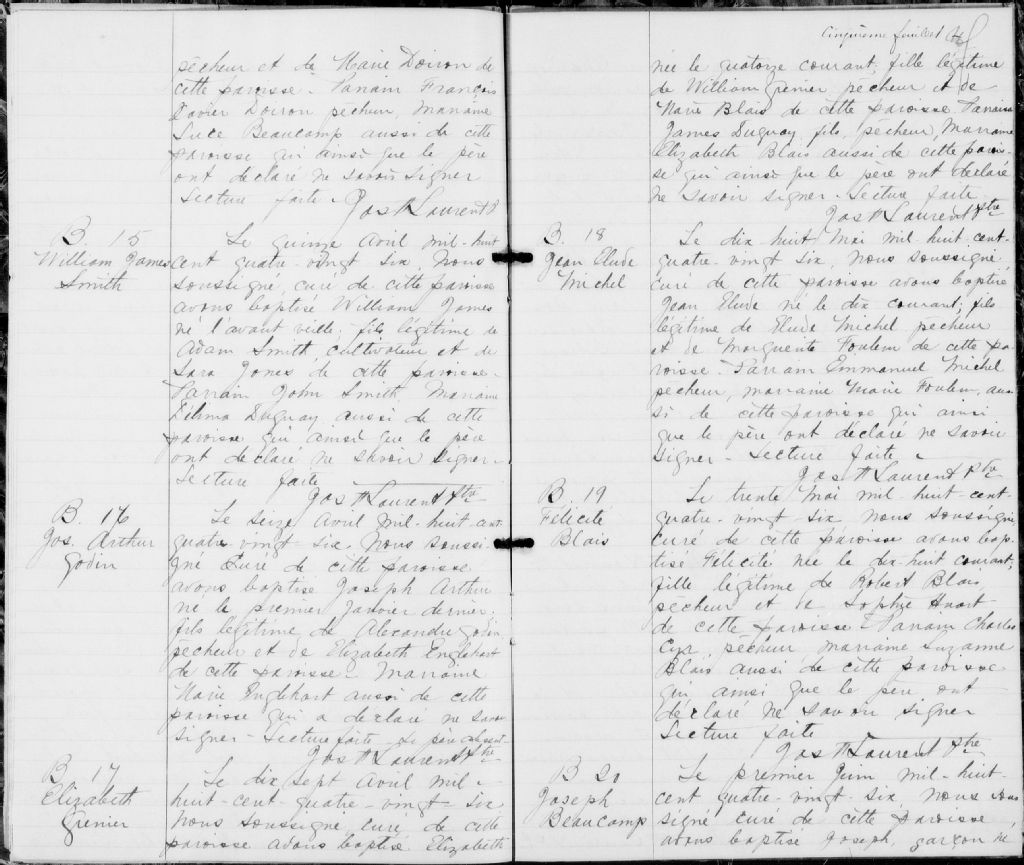 pêcheur et de Marie Doiron de
cette paroisse - Parrain François
Xavier Doiron pêcheur, Marraine
Luce Beaucamp aussi de cette
paroisse qui ainsi que le père
ont declaré ne savoir signer
Lecture faite - Jos N Laurent
B. 15
William James
Smith
Le quinze Avril mil-huit
cent quatre-vingt six, Nous
soussigné, curé de cette paroisse
avons baptisé William James
né l'avant veille, fils légitime de
Adam Smith, cultivateur et de
Sara Jones de cette paroisse -
Parrain John Smith, Marraine
Duguay aussi de cette
paroisse qui ainsi que le père
ont declaré ne savoir signer -
Lecture faite
Jos N Laurent Ptre
B. 16
Jos. Arthur
Godin
Le seize Avril mil-huit-cent
quatre-vingt-six, Nous soussi-
gné Curé de cette paroisse
avons baptisé Joseph Arthur
né le premier Janvier dernier,
fils legitime de Alexandre Godin
pêcheur et de Elizabeth Englehart
de cette paroisse - Marraine
Marie Englehart aussi de cette
paroisse qui a declaré ne savoir
signer - Lecture faite - Le père absent -
Jos N Laurent Ptre
B. 17
Elizabeth
Grenier
Le dix sept Avril mil-
huit-cent-quatre-vingt-six
Nous soussigné, curé de cette
paroisse avons baptisé Elizabeth
Cinquième feuillet
née le quatorze courant, fille légitime
de William Grenier pêcheur et de
Marie Blais de cette paroisse Parrain
James Duguay, fils, pêcheur, Marraine
Elizabeth Blais aussi de cette parois-
se qui ainsi que le père ont déclaré
ne savoir signer - Lecture faite
Jos N Laurent Ptre
B. 18
Jean Elude
Michel
Le dix huit Mai mil-huit-cent-
quatre-vingt six, Nous soussigné
curé de cette paroisse avons baptisé
Jean Elude né le dix courant, fils
légitime de Elude Michel pêcheur
et de Marguerite Foulem de cette pa-
roisse - Parrain Emmanuel Michel
pêcheur, marraine Marie Foulem, aus-
si de cette paroisse qui ainsi
que le père, ont déclaré ne savoir
signer - Lecture faite -
Jos N Laurent Ptre
B. 19
Félicité
Blais
Le trente Mai mil-huit-cent-
quatre-vingt-six, Nous soussigné
curé de cette paroisse avons bap-
tisé Félicité née le dix-huit courant,
fille légitime de Robert Blais,
pêcheur et de Sophie Huart
de cette paroisse - Parrain Charles
Cyr, pêcheur, marraine Suzanne
Blais aussi de cette paroisse
qui ainsi que le père ont
déclaré ne savoir signer
Lecture faite
Jos N Laurent Ptre
B 20
Joseph
Beaucamp
Le premier Juin mil-huit-
cent quatre-vingt-six, Nous sous
signé, curé de cette paroisse
avons baptisé Joseph, garçon né,